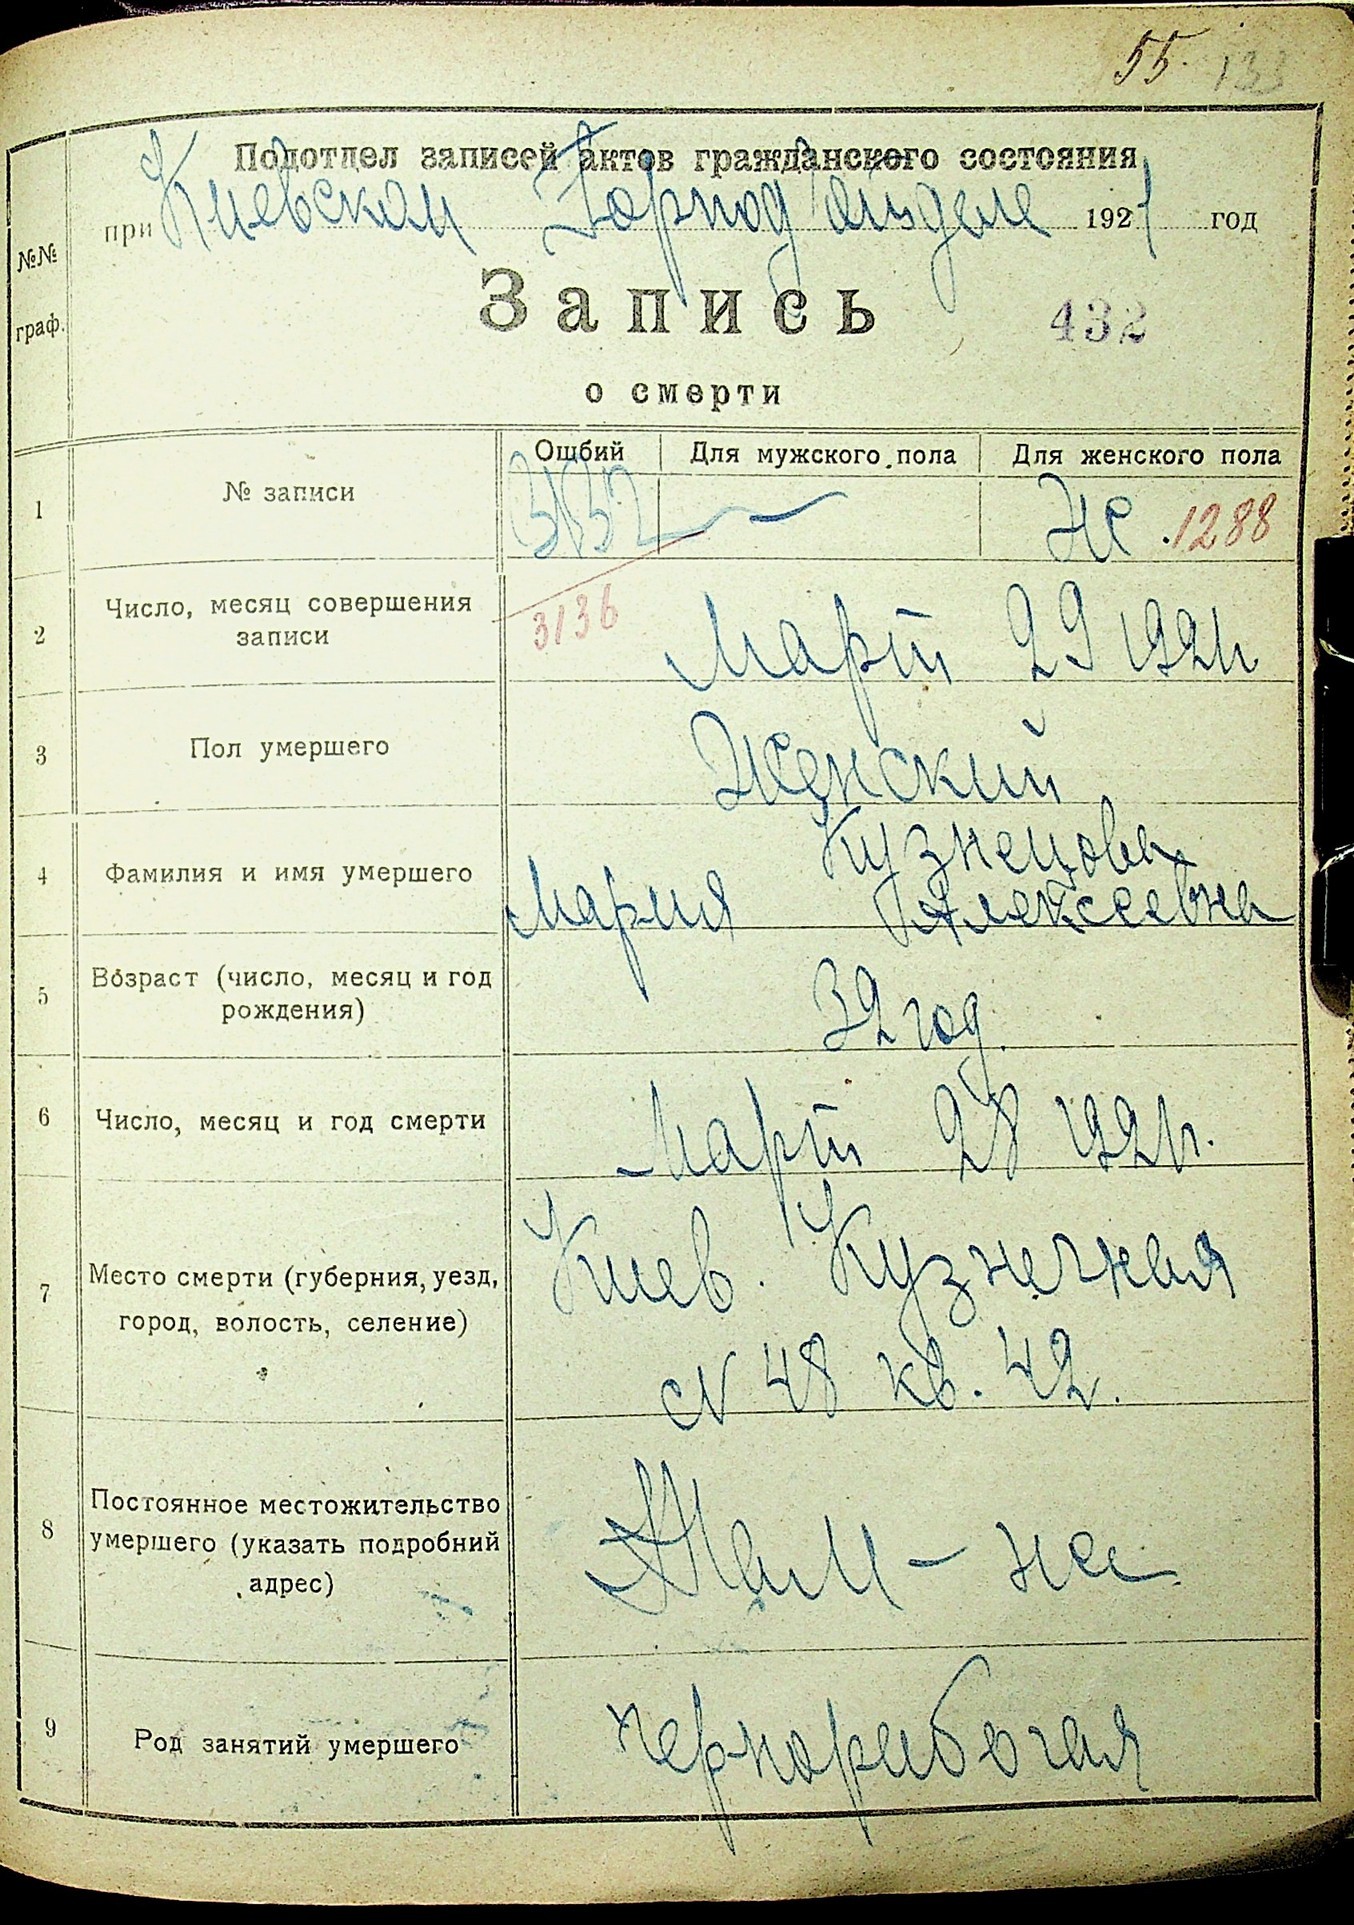 55. 133
Подотдел записей актов гражданского состояния
при Киевском Горподотделе 1921 год
№№
граф.
Запись
432
о смерти
Ощбий Для мужского пола Для женского пола
1 № записи — Же .1288
3136
2 Число, месяц совершения
записи
Март 29 1921г
3 Пол умершего Женский
Кузнецова
4 Фамилия и имя умершего
Мария Алексеевна
5 Возраст (число, месяц и год
рождения)
32 год.
6 Число, месяц и год смерти Март 28 1921г.
Киев. Кузнечная
7 Место смерти (губерния, уезд,
город, волость, селение)
№ 48 кв. 42.
8 Постоянное местожительство
умершего (указать подробний
адрес)
Там - же
9 Род занятий умершего чернорабочая